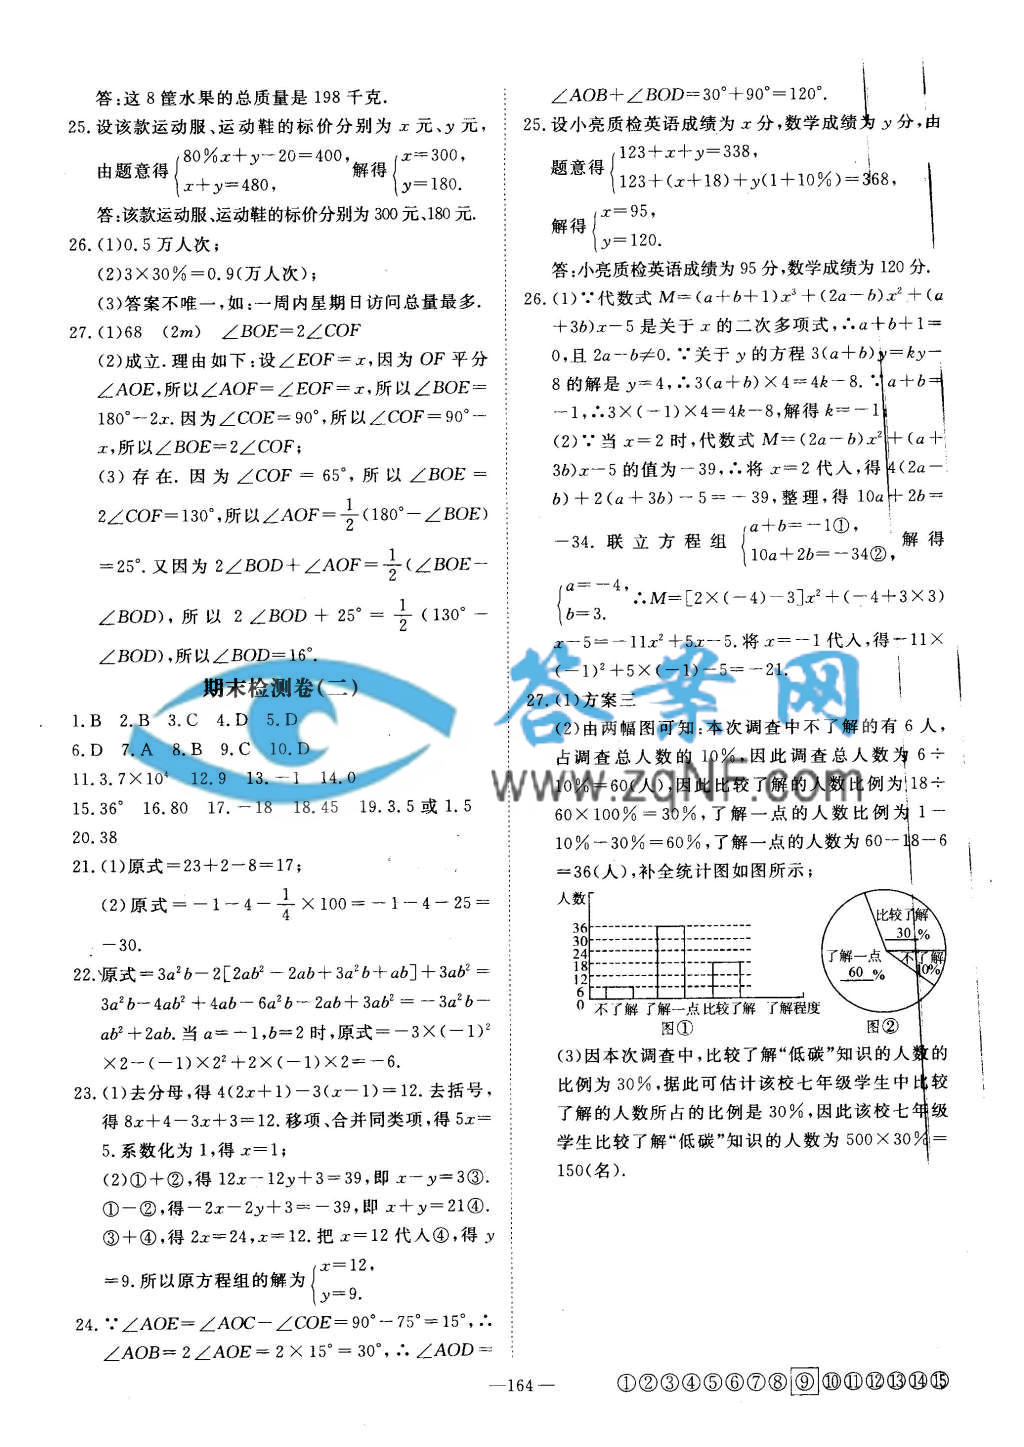 答:这 8 筐水果的总质量是 198 千克.
25. 设该款运动服、运动鞋的标价分别为 x 元、y 元,
由题意得{80%x+y-20=400, x+y=480, 解得{x=300, y=180.
答:该款运动服、运动鞋的标价分别为 300 元、180 元.
26. (1)0.5 万人次;
(2)3×30%=0.9(万人次);
(3)答案不唯一,如:一周内星期日访问总量最多.
27. (1)68 (2m) ∠BOE=2∠COF
(2)成立. 理由如下:设∠EOF=x,因为 OF 平分
∠AOE,所以∠AOF=∠EOF=x,所以∠BOE=
180°-2x. 因为∠COE=90°,所以∠COF=90°-
x,所以∠BOE=2∠COF;
(3)存在. 因为∠COF=65°,所以∠BOE=
2∠COF=130°,所以∠AOF=1/2(180°-∠BOE)
=25°. 又因为 2∠BOD+∠AOF=1/2(∠BOE-
∠BOD),所以 2∠BOD+25°=1/2(130°-
∠BOD),所以∠BOD=16°.
期末检测卷(二)
1. B 2. B 3. C 4. D 5. D
6. D 7. A 8. B 9. C 10. D
11. 3.7×10⁴ 12. 9 13. -1 14. 0
15. 36° 16. 80 17. -18 18. 45 19. 3.5 或 1.5
20. 38
21. (1)原式=23+2-8=17;
(2)原式=-1-4-1/4×100=-1-4-25=
-30.
22. 原式=3a²b-2[2ab²-2ab+3a²b+ab]+3ab²=
3a²b-4ab²+4ab-6a²b-2ab+3ab²=-3a²b-
ab²+2ab. 当 a=-1,b=2 时,原式=-3×(-1)²
×2-(-1)×2²+2×(-1)×2=-6.
23. (1)去分母,得 4(2x+1)-3(x-1)=12. 去括号,
得 8x+4-3x+3=12. 移项、合并同类项,得 5x=
5. 系数化为 1,得 x=1;
(2)①+②,得 12x-12y+3=39,即 x-y=3③.
①-②,得-2x-2y+3=-39,即 x+y=21④.
③+④,得 2x=24,x=12. 把 x=12 代入④,得 y
=9. 所以原方程组的解为{x=12, y=9.
24. ∵∠AOE=∠AOC-∠COE=90°-75°=15°,∴
∠AOB=2∠AOE=2×15°=30°,∴∠AOD=
∠AOB+∠BOD=30°+90°=120°.
25. 设小亮质检英语成绩为 x 分,数学成绩为 y 分,由
题意得{123+x+y=338, 123+(x+18)+y(1+10%)=368,
解得{x=95, y=120.
答:小亮质检英语成绩为 95 分,数学成绩为 120 分.
26. (1)∵代数式 M=(a+b+1)x³+(2a-b)x²+(a
+3b)x-5 是关于 x 的二次多项式,∴a+b+1=
0,且 2a-b≠0. ∵关于 y 的方程 3(a+b)y=ky-
8 的解是 y=4,∴3(a+b)×4=4k-8. ∵a+b=
-1,∴3×(-1)×4=4k-8,解得 k=-1
(2)∵当 x=2 时,代数式 M=(2a-b)x²+(a+
3b)x-5 的值为-39,∴将 x=2 代入,得 4(2a-
b)+2(a+3b)-5=-39,整理,得 10a+2b=
-34. 联立方程组{a+b=-1①, 10a+2b=-34②, 解得
{a=-4, b=3. ∴M=[2×(-4)-3]x²+(-4+3×3)
x-5=-11x²+5x-5. 将 x=-1 代入,得-11×
(-1)²+5×(-1)-5=-21.
27. (1)方案三
(2)由两幅图可知:本次调查中不了解的有 6 人,
占调查总人数的 10%,因此调查总人数为 6÷
10%=60(人),因此比较了解的人数比例为 18÷
60×100%=30%,了解一点的人数比例为 1-
10%-30%=60%,了解一点的人数为 60-18-6
=36(人),补全统计图如图所示;
人数
36
30
24
18
12
6
0
不了解 了解一点 比较了解 了解程度
图①
比较了解
30 %
了解一点
60 %
不了解
10%
图②
(3)因本次调查中,比较了解“低碳”知识的人数的
比例为 30%,据此可估计该校七年级学生中比较
了解的人数所占的比例是 30%,因此该校七年级
学生比较了解“低碳”知识的人数为 500×30%=
150(名).
答案网
www.zqNF.com
—164—
①②③④⑤⑥⑦⑧⑨⑩⑪⑫⑬⑭⑮